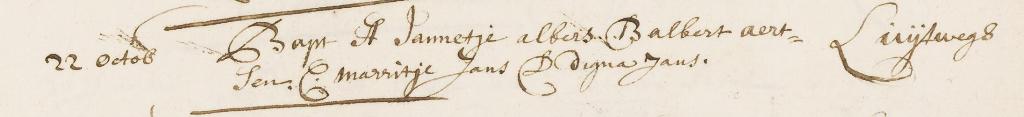 22 octob Bapt A Jannetje albers. B albert aert= Luijtwegs
sen. C marritje Jans D digna Jans.